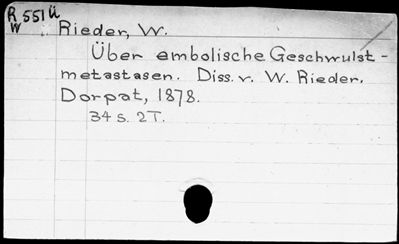 R 551 ü
W
Rieder, W.
Über embolische Geschwulst-
metastasen. Diss. v. W. Rieder.
Dorpat, 1878.
34 S. 2T.